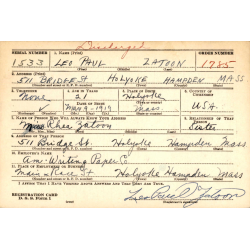 Discharged
SERIAL NUMBER 1. NAME (Print) ORDER NUMBER
1533 LEO PAUL ZATOON 1785
2. ADDRESS (Print)
511 BRIDGE ST HOLYOKE HAMPDEN MASS
3. TELEPHONE 4. AGE IN YEARS 5. PLACE OF BIRTH 6. COUNTRY OF CITIZENSHIP
None 21 Holyoke
DATE OF BIRTH
Mar 9-1919 Mass USA
7. NAME OF PERSON WHO WILL ALWAYS KNOW YOUR ADDRESS 8. RELATIONSHIP OF THAT PERSON
Rhea Zatoon Sister
9. ADDRESS OF THAT PERSON
511 Bridge St Holyoke Hampden Mass
10. EMPLOYER'S NAME
Am. Writing Paper Co
11. PLACE OF EMPLOYMENT OR BUSINESS
Main Race St Holyoke Hampden Mass
I AFFIRM THAT I HAVE VERIFIED ABOVE ANSWERS AND THAT THEY ARE TRUE.
REGISTRATION CARD
D. S. S. Form 1
Leo Paul Zatoon